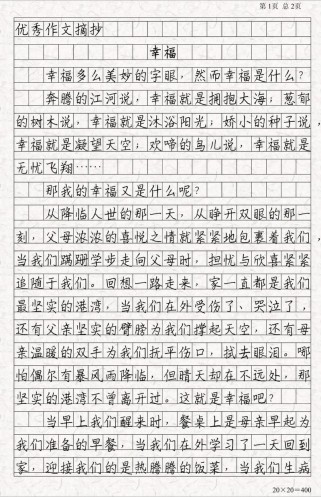 第1页 总2页
优秀作文摘抄
幸福
幸福多么美妙的字眼，然而幸福是什么？
奔腾的江河说，幸福就是拥抱大海；葱郁
的树木说，幸福就是沐浴阳光；娇小的种子说，
幸福就是凝望天空；欢啼的鸟儿说，幸福就是
无忧飞翔……
那我的幸福又是什么呢？
从降临人世的那一天，从睁开双眼的那一
刻，父母浓浓的喜悦之情就紧紧地包裹着我们，
当我们蹒跚学步走向父母时，担忧与欣喜紧紧
追随于我们。回想一路走来，家一直都是我们
最坚实的港湾，当我们在外受伤了、哭泣了，
还有父亲坚实的臂膀为我们撑起天空，还有母
亲温暖的双手为我们抚平伤口，拭去眼泪。哪
怕偶尔有暴风雨降临，但晴天却在不远处，那
坚实的港湾不曾离开过。这就是幸福吧？
当早上我们醒来时，餐桌上是母亲早起为
我们准备的早餐，当我们在外学习了一天回到
家，迎接我们的是热腾腾的饭菜，当我们生病
20×20=400